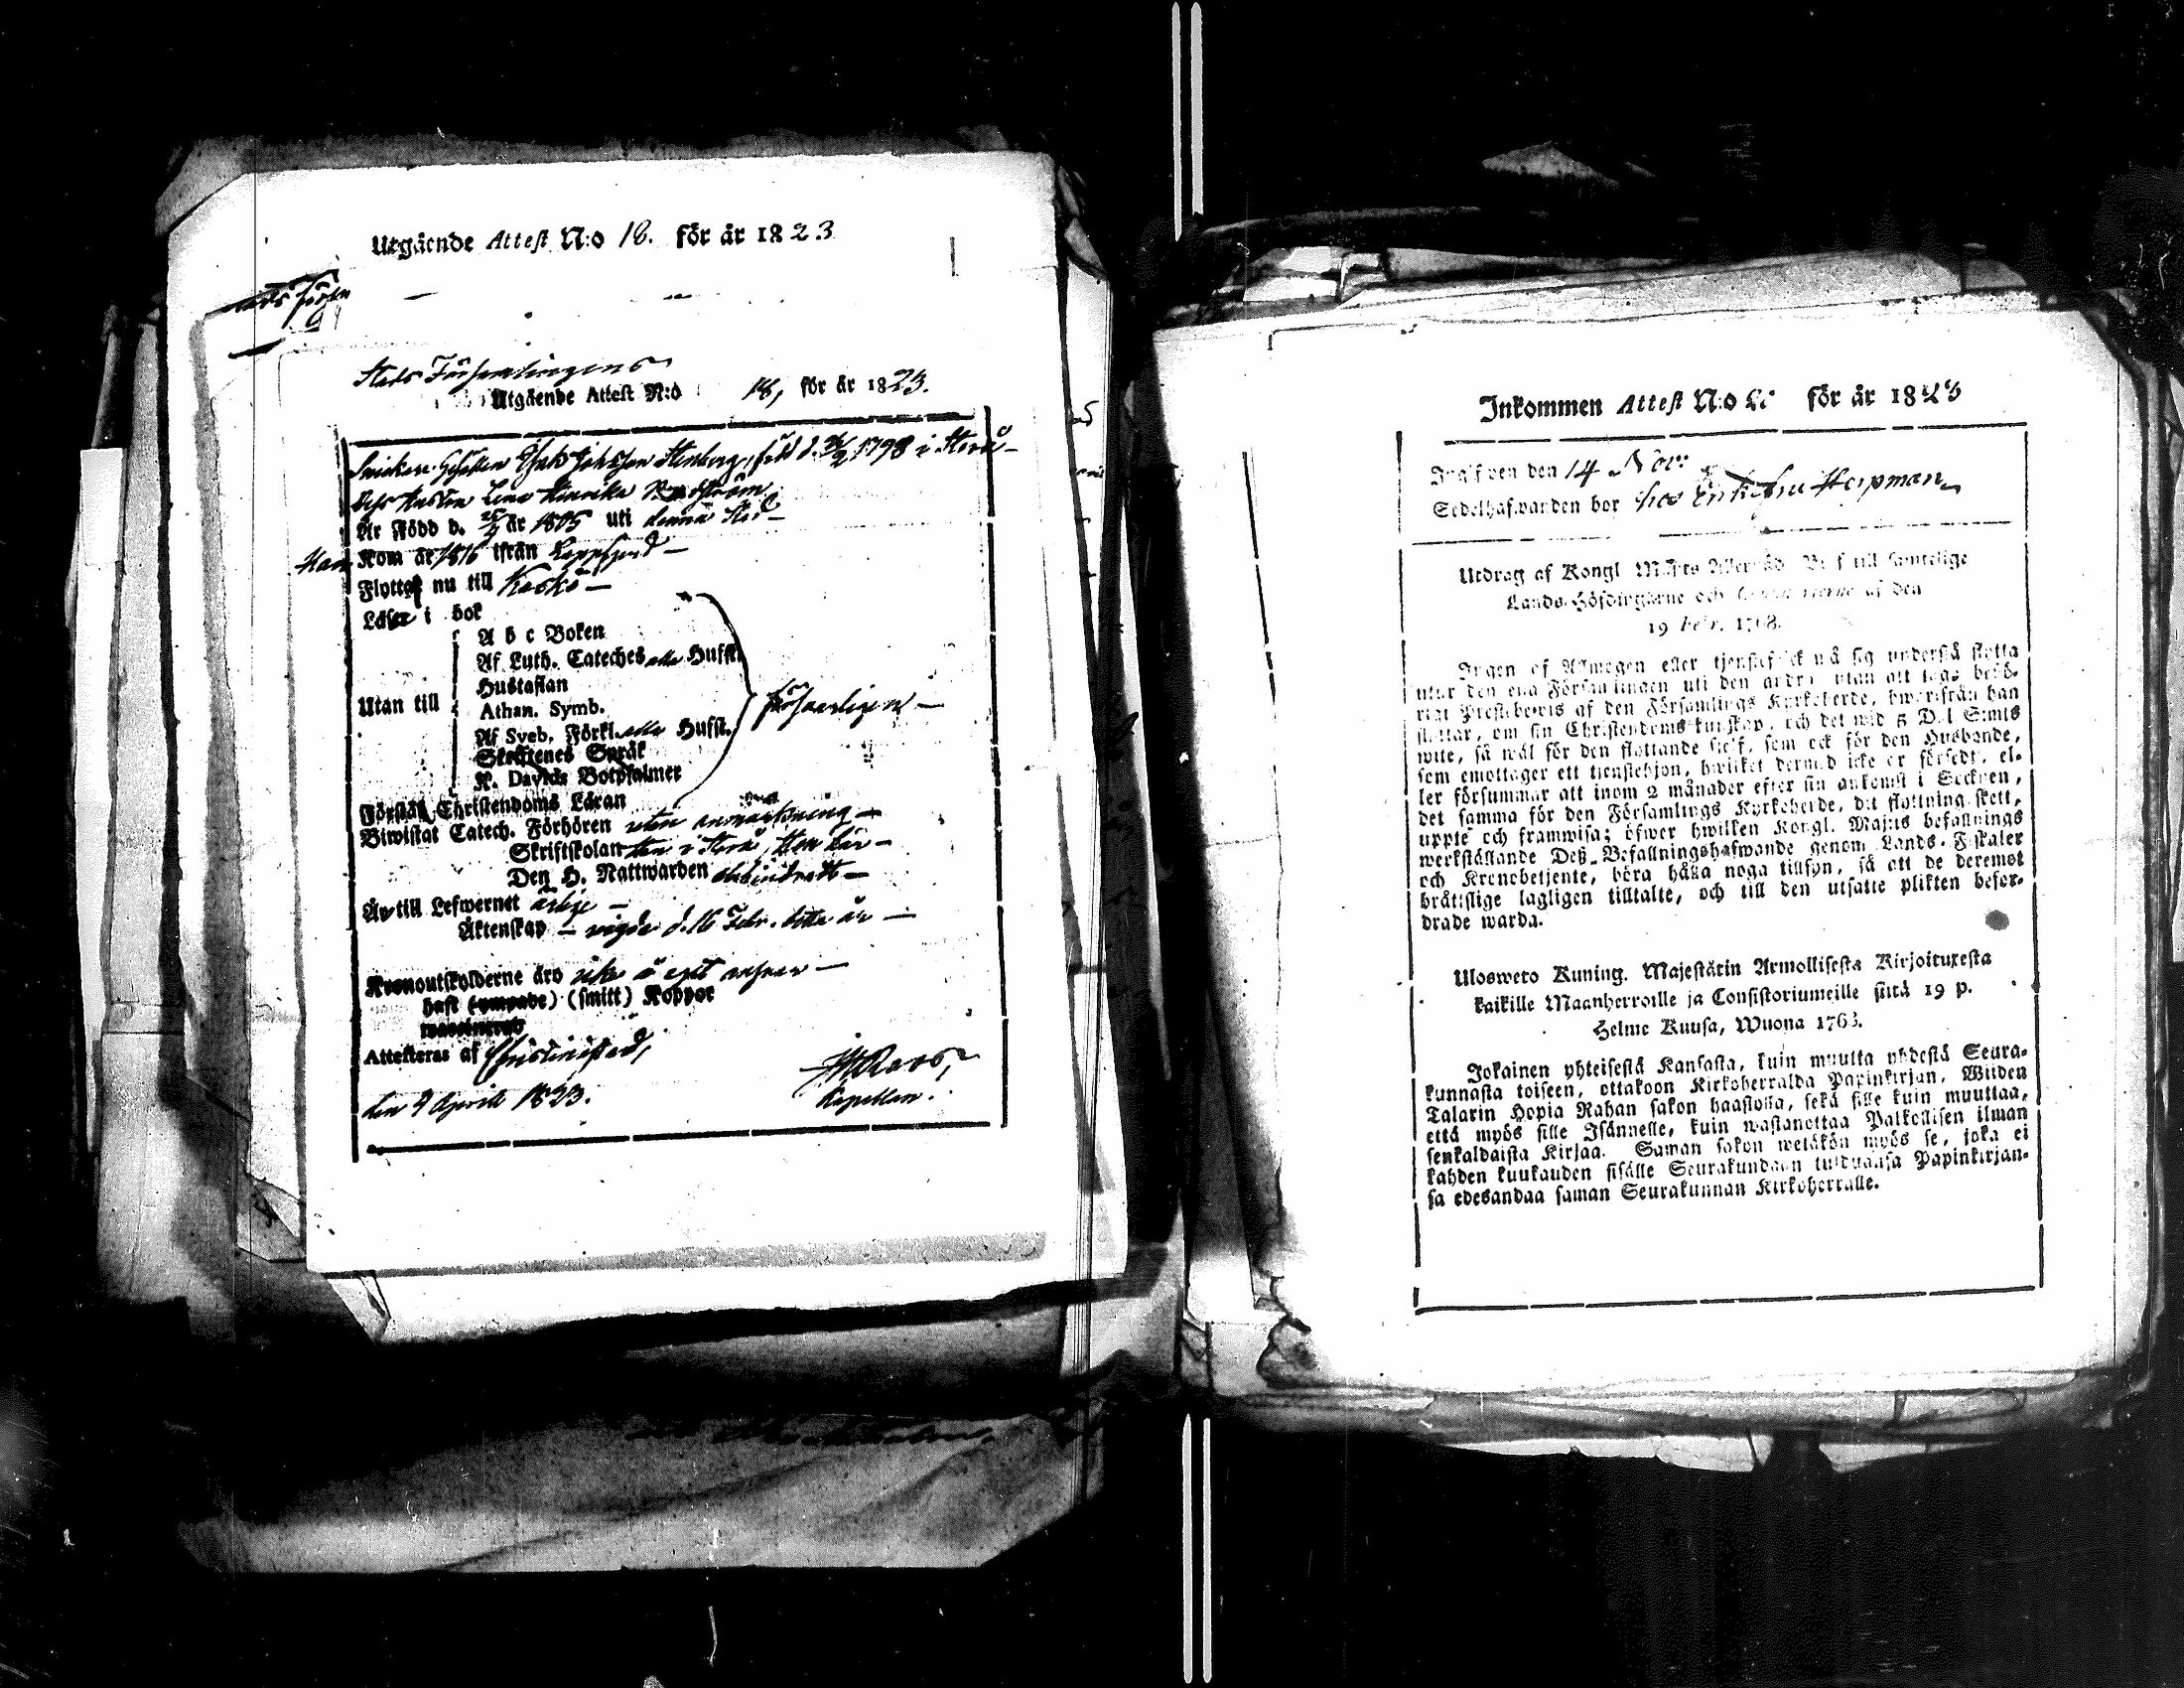 Utgående Attest N:o 18. för år 1823
Stads Församlingens
Utgående Attest N:o 18, för år 1823.
Snickare Gesällen Johansson Stenberg, född d. 1798 i Storå
Dess Hustru Lena Henrika
Är Född d. år 1805 uti denna Stad
Han Kom år 1816 ifrån Lappfjerd
Flyttar nu till Kaskö
Läser i bok
Utan till
A b c Boken
Af Luth. Cateches alla Hufst.
Hustaflan
Athan. Symb.
Af Sveb. Förkl. alla Hufst.
Skriftenes Språk
K. Davids Botpsalmer
försvarligen
Förstår Christendoms Läran
Biwistat Catech. Förhören utan anmärkning
Skriftskolan han i Storå, Hon här
Den H. Nattwarden obehindradt
Är till Lefwernet ärlige
Äktenskap vigde d. 16 Febr. detta år
Kronoutskylderne äro
haft (ympade) (smitt) Koppor
Attesteras af Christinestad,
den 9 April 1823.
Roos,
Kapellan.
Inkommen Attest N:o för år 1823
Ingifven den 14 Nov:
Sedelhafwanden bor hos Enkefru Hoipman
Utdrag af Kongl Maj:ts Allernåd. Bref till samtelige
Lands-Höfdingarne och Consistorierne af den
19 Febr. 1768.
Ingen af Allmogen eller tjenstefolck må sig understå flytta
utur den ena Församlingen uti den andra utan att taga behö-
rigt Prestebewis af den Församlings Kyrkoherde, hwarifrån han
flyttar, om sin Christendoms kunskap, och det wid 5 Dal. S:mts
wite, så wäl för den flyttande sielf, som ock för den Husbonde,
som emottager ett tienstehjon, hwilket dermed icke är försedt, el-
ler försummar att inom 2 månader efter sin ankomst i Socknen,
det samma för den Församlings Kyrkoherde, dit flyttning skett,
uppte och framwisa; öfwer hwilken Kongl. Maj:ts befallnings
werkställande Deß Befallningshafwande genom Lands-Fiskaler
och Kronobetjente, böra hålla noga tillsyn, så att de deremot
bråtslige lagligen tilltalte, och till den utsatte plikten befor-
drade warda.
Ulosweto Kuning. Majestätin Armollisesta Kirjoituxesta
kaikille Maanherroille ja Consistoriumeille siitä 19 p.
Helme Kuusa, Wuona 1768.
Jokainen yhteisestä Kansasta, kuin muutta yhdestä Seura-
kunnasta toiseen, ottakoon Kirkoherralda Papinkirjan, Wiiden
Talarin Hopia Rahan sakon haastolla, sekä sille kuin muuttaa,
että myös sille Isännelle, kuin wastanottaa Palkollisen ilman
senkaldaista Kirjaa. Saman sakon wetäkön myös se, joka ei
kahden kuukauden sisälle Seurakundaan tulduansa Papinkirjan-
sa edesandaa saman Seurakunnan Kirkoherralle.